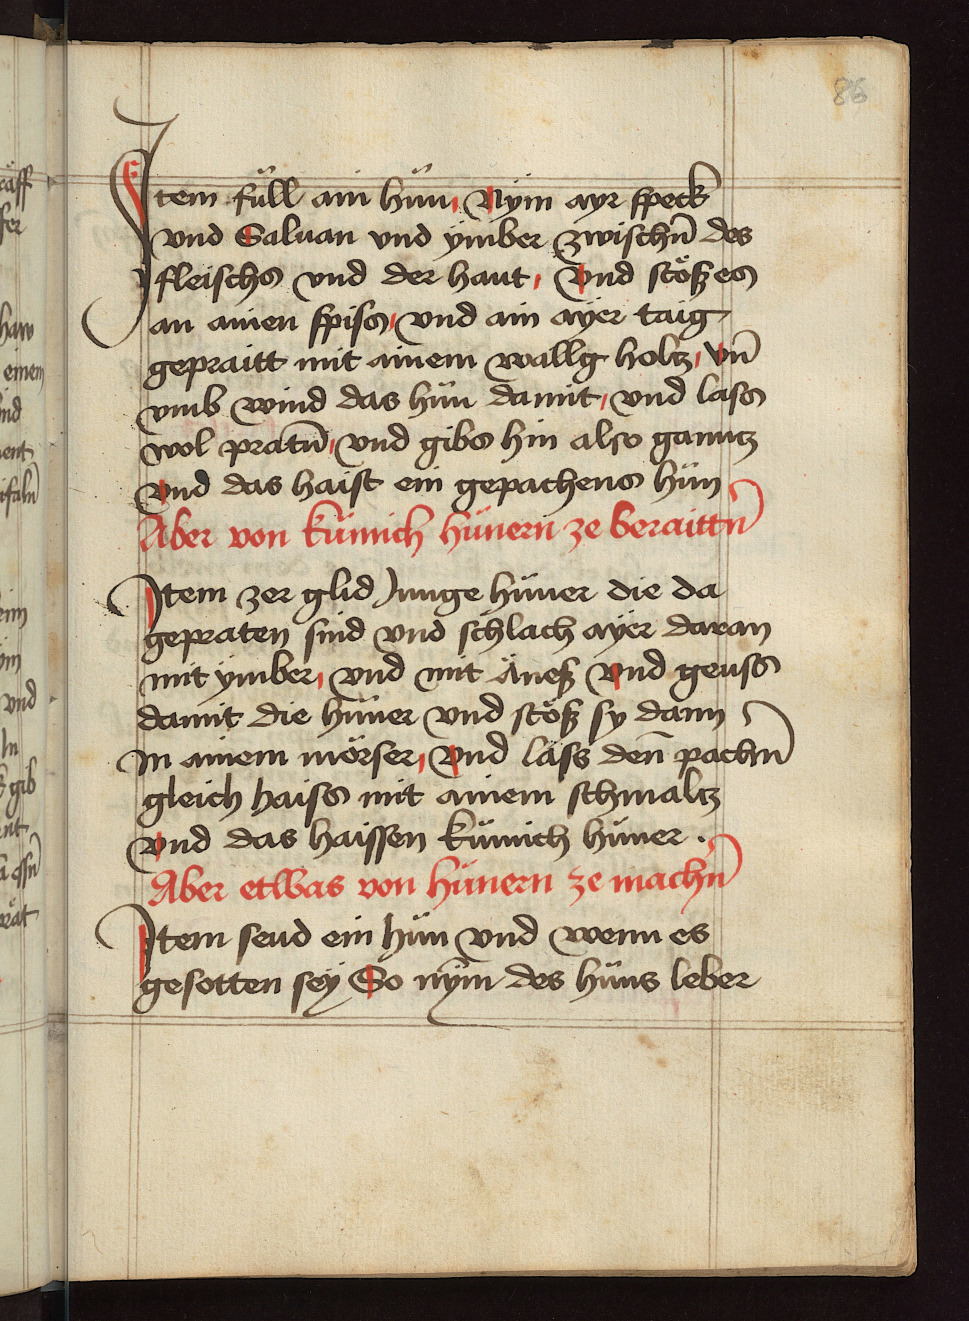 86
Item füll ain hün, Nym ayr speck
vnd Saluan vnd ymber zwischn̄ des
fleischs vnd der haut, Vnd stöß es
an ainen spiss, vnd ain ayer taig
gepraitt mit ainem wallg holtz, vn̄
vmb wind das hün damit, vnd lass
wol pratn̄, vnd gibs hin also gantz
Vnd das haist ein gepachens hün
Aber von künich hünern ze beraittn̄
Item zer glid Junge hüner die da
gepraten sind vnd schlach ayer daran
mit ymber, vnd mit Äneß Vnd geuss
damit die hüner vnd stöß sy dann
In ainem mörser, Vnd läss den̄ pachn̄
gleich haiss mit ainem schmaltz
Vnd das haissen künich hüner.
Aber etwas von hünern ze machn̄
Item seud ein hün vnd wenn es
gesotten sey So nym des hüns leber